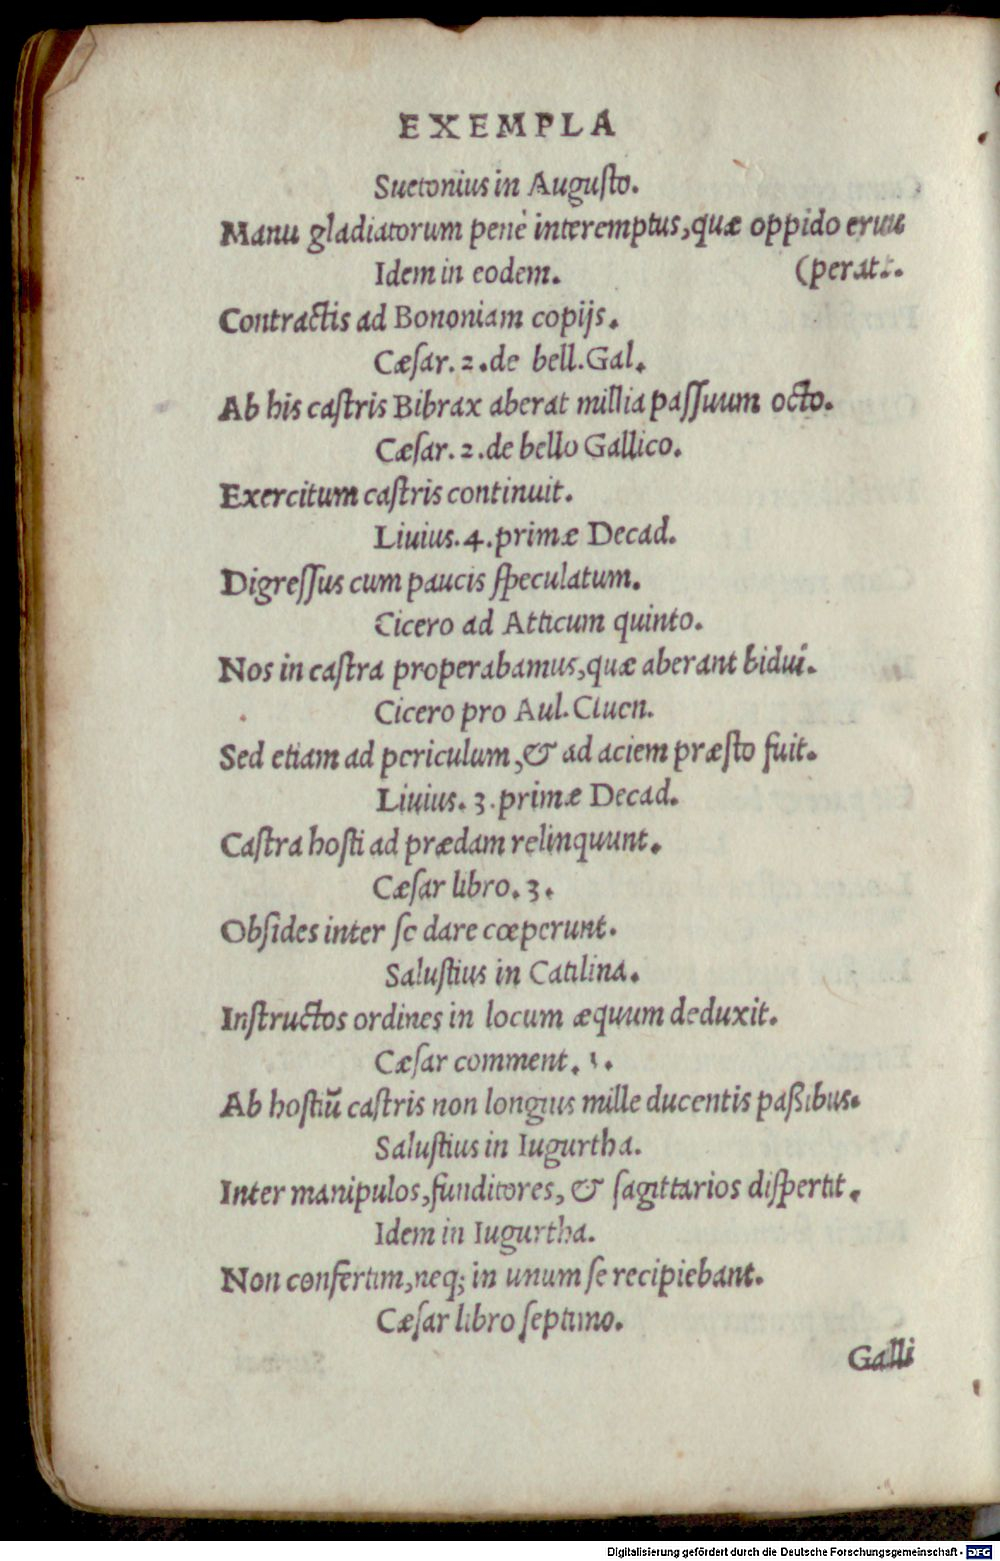 EXEMPLA
Suetonius in Auguſto.
Manu gladiatorum penè interemptus, quæ oppido eruu
Idem in eodem. (perat.
Contractis ad Bononiam copijs.
Cæſar. 2. de bell. Gal.
Ab his caſtris Bibrax aberat millia paſſuum octo.
Cæſar. 2. de bello Gallico.
Exercitum caſtris continuit.
Liuius. 4. primæ Decad.
Digreſſus cum paucis ſpeculatum.
Cicero ad Atticum quinto.
Nos in caſtra properabamus, quæ aberant bidui.
Cicero pro Aul. Cluen.
Sed etiam ad periculum, & ad aciem præſto fuit.
Liuius. 3. primæ Decad.
Caſtra hoſti ad prædam relinquunt.
Cæſar libro. 3.
Obſides inter ſe dare cœperunt.
Saluſtius in Catilina.
Inſtructos ordines in locum æquum deduxit.
Cæſar comment. 1.
Ab hoſtiū caſtris non longius mille ducentis paßibus.
Saluſtius in Iugurtha.
Inter manipulos, funditores, & ſagittarios diſpertit.
Idem in Iugurtha.
Non confertim, neq; in unum ſe recipiebant.
Cæſar libro ſeptimo.
Galli
Digitalisierung gefördert durch die Deutsche Forschungsgemeinschaft - DFG